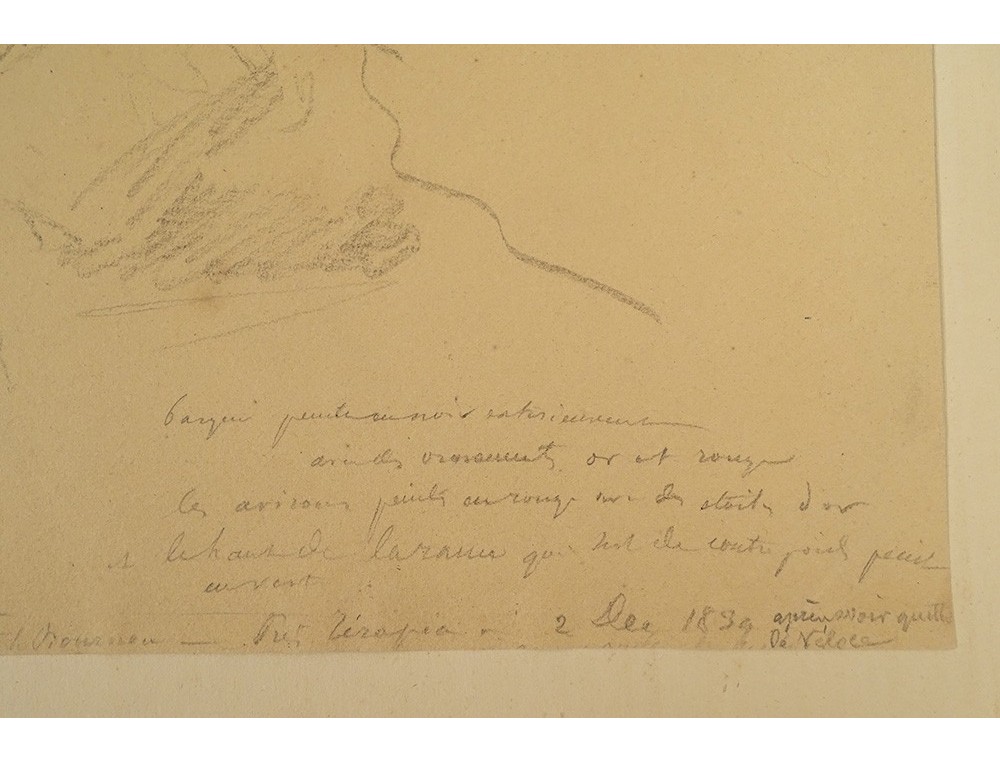 barque peinte en noir extérieurement
avec des ornements or et rouge
les avirons peints en rouge avec des étoiles d'or
et le haut de la rame qui sert de contre poids peint
en vert
Près Térapia 2 Dec 1839 après avoir quitté
Le Véloce